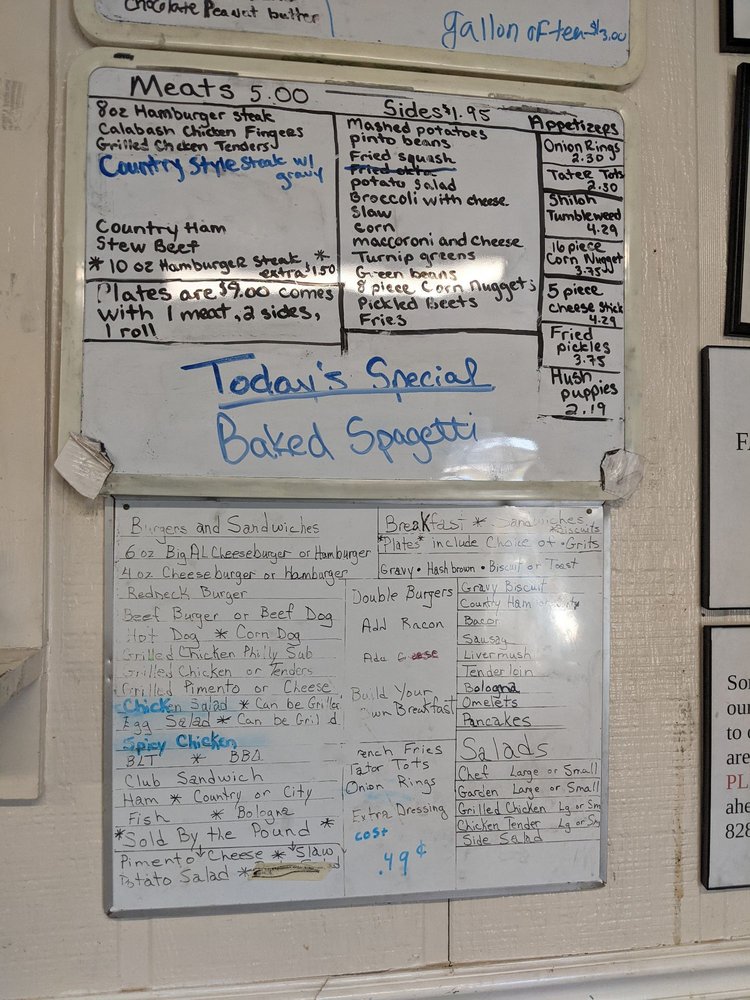 Chocolate Peanut butter
gallon of tea $3.00
Meats 5.00
8oz Hamburger steak
Calabash Chicken Fingers
Grilled Chcken Tenders
Country Style steak w/
gravy
Country Ham
Stew Beef
* 10 oz Hamburger Steak *
extra $1.50
Plates are $9.00 comes
with 1 meat, 2 sides,
1 roll
Sides $1.95
Mashed potatoes
pinto beans
Fried squash
Fried okra
potato salad
Broccoli with cheese
Slaw
Corn
maccoroni and cheese
Turnip greens
Green beans
8 piece Corn Nuggets
Pickled Beets
Fries
Appetizers
Onion Rings
2.30
Tater Tots
2.30
Shiloh
Tumbleweed
4.29
16 piece
Corn Nugget
3.75
5 piece
cheese stick
4.29
Fried
pickles
3.75
Hush
puppies
2.19
Today's Special
Baked Spagetti
Burgers and Sandwiches
6 oz Big AL Cheeseburger or Hamburger
4 oz Cheeseburger or Hamburger
Redneck Burger
Beef Burger or Beef Dog
Hot Dog * Corn Dog
Grilled Chicken Philly Sub
Grilled Chicken or Tenders
Grilled Pimento or Cheese
Chicken Salad * Can be Grilled
Egg Salad * Can be Gril d
Spicy Chicken
BLT * BBQ
Club Sandwich
Ham * Country or City
Fish * Bologna
*Sold By the Pound *
Pimento Cheese * Slaw
Potato Salad *
Breakfast * Sandwiches
*Biscuits
*Plates* include Choice of • Grits
Gravy • Hashbrown • Biscuit or Toast
Double Burgers
Add Bacon
Add Cheese
Build Your
Own Breakfast
French Fries
Tator Tots
Onion Rings
Extra Dressing
cost
.49¢
Gravy Biscuit
Country Ham
Bacon
Sausag
Livermush
Tenderloin
Bologna
Omelets
Pancakes
Salads
Chef Large or Small
Garden Large or Small
Grilled Chicken Lg or Sm
Chicken Tender Lg or Sm
Side Salad
FA
Som
our
to c
are
PL
ahe
828